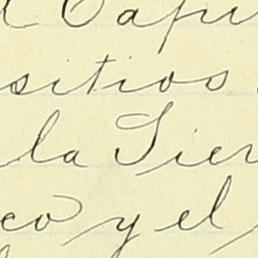 Capi
sitios
la Sier
co y el